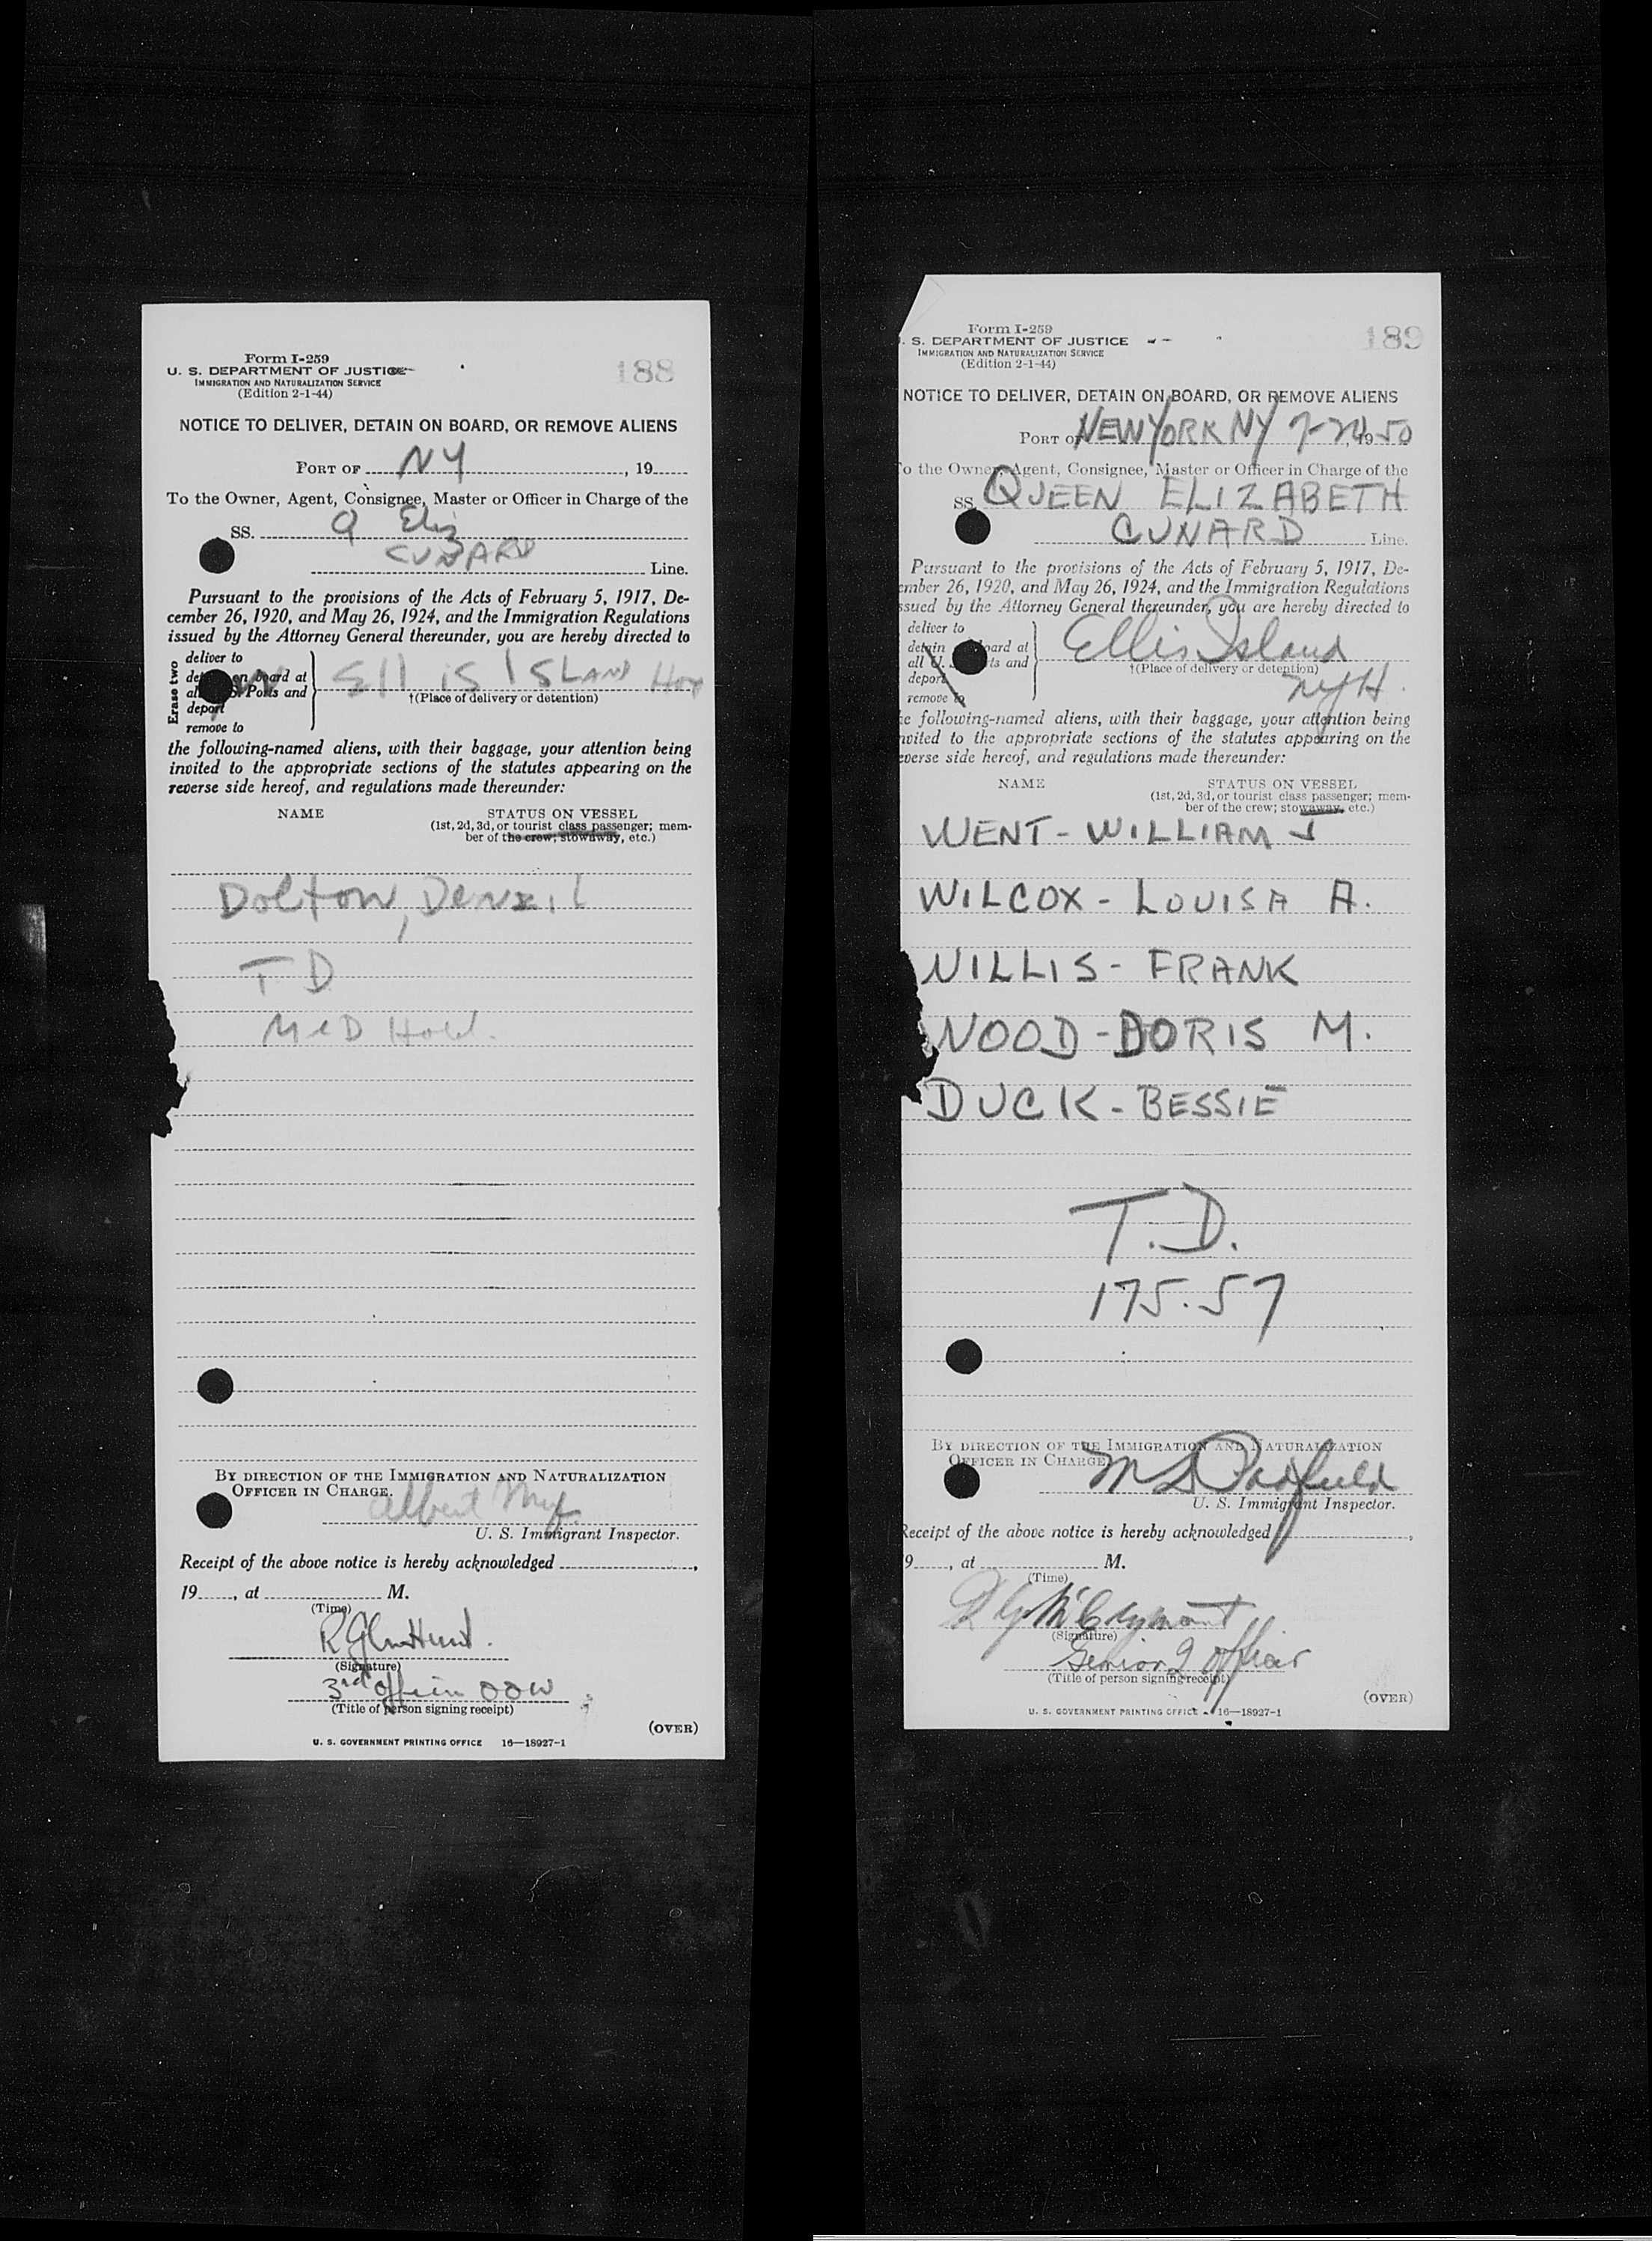 Form I-259
U. S. DEPARTMENT OF JUSTICE
IMMIGRATION AND NATURALIZATION SERVICE
(Edition 2-1-44)
188
NOTICE TO DELIVER, DETAIN ON BOARD, OR REMOVE ALIENS
PORT OF NY, 19
To the Owner, Agent, Consignee, Master or Officer in Charge of the
SS. Q Eliz
CUNARD Line.
Pursuant to the provisions of the Acts of February 5, 1917, De-
cember 26, 1920, and May 26, 1924, and the Immigration Regulations
issued by the Attorney General thereunder, you are hereby directed to
Erase two
deliver to
on board at
Ports and
deport
remove to
Ellis ISLAND
†(Place of delivery or detention)
the following-named aliens, with their baggage, your attention being
invited to the appropriate sections of the statutes appearing on the
reverse side hereof, and regulations made thereunder:
NAME
STATUS ON VESSEL
(1st, 2d, 3d, or tourist class passenger; mem-
ber of the crew; stowaway, etc.)
Dolton, Denzil
T D
MeD Hold.
BY DIRECTION OF THE IMMIGRATION AND NATURALIZATION
OFFICER IN CHARGE.
Albert
U. S. Immigrant Inspector.
Receipt of the above notice is hereby acknowledged ,
19 , at M.
(Time)
(Signature)
3rd officer OOW
(Title of person signing receipt)
(OVER)
U. S. GOVERNMENT PRINTING OFFICE 16—18927-1
Form I-259
S. DEPARTMENT OF JUSTICE
IMMIGRATION AND NATURALIZATION SERVICE
(Edition 2-1-44)
189
NOTICE TO DELIVER, DETAIN ON BOARD, OR REMOVE ALIENS
PORT OF NEW YORK NY 7-24 1950
To the Owner, Agent, Consignee, Master or Officer in Charge of the
SS. QUEEN ELIZABETH
CUNARD Line.
Pursuant to the provisions of the Acts of February 5, 1917, De-
ember 26, 1920, and May 26, 1924, and the Immigration Regulations
ssued by the Attorney General thereunder, you are hereby directed to
deliver to
detain board at
all U. ts and
deport
remove to
Ellis Island
†(Place of delivery or detention)
NYH.
e following-named aliens, with their baggage, your attention being
nvited to the appropriate sections of the statutes appearing on the
everse side hereof, and regulations made thereunder:
NAME
STATUS ON VESSEL
(1st, 2d, 3d, or tourist class passenger; mem-
ber of the crew; stowaway, etc.)
WENT - WILLIAM J
WILCOX - LOUISA A.
WILLIS - FRANK
WOOD - DORIS M.
DUCK - BESSIE
T.D.
175.57
BY DIRECTION OF THE IMMIGRATION AND NATURALIZATION
OFFICER IN CHARGE
M L Padfield
U. S. Immigrant Inspector.
Receipt of the above notice is hereby acknowledged ,
9 , at M.
(Time)
(Signature)
Senior 2 officer
(Title of person signing receipt)
(OVER)
U. S. GOVERNMENT PRINTING OFFICE 16—18927-1